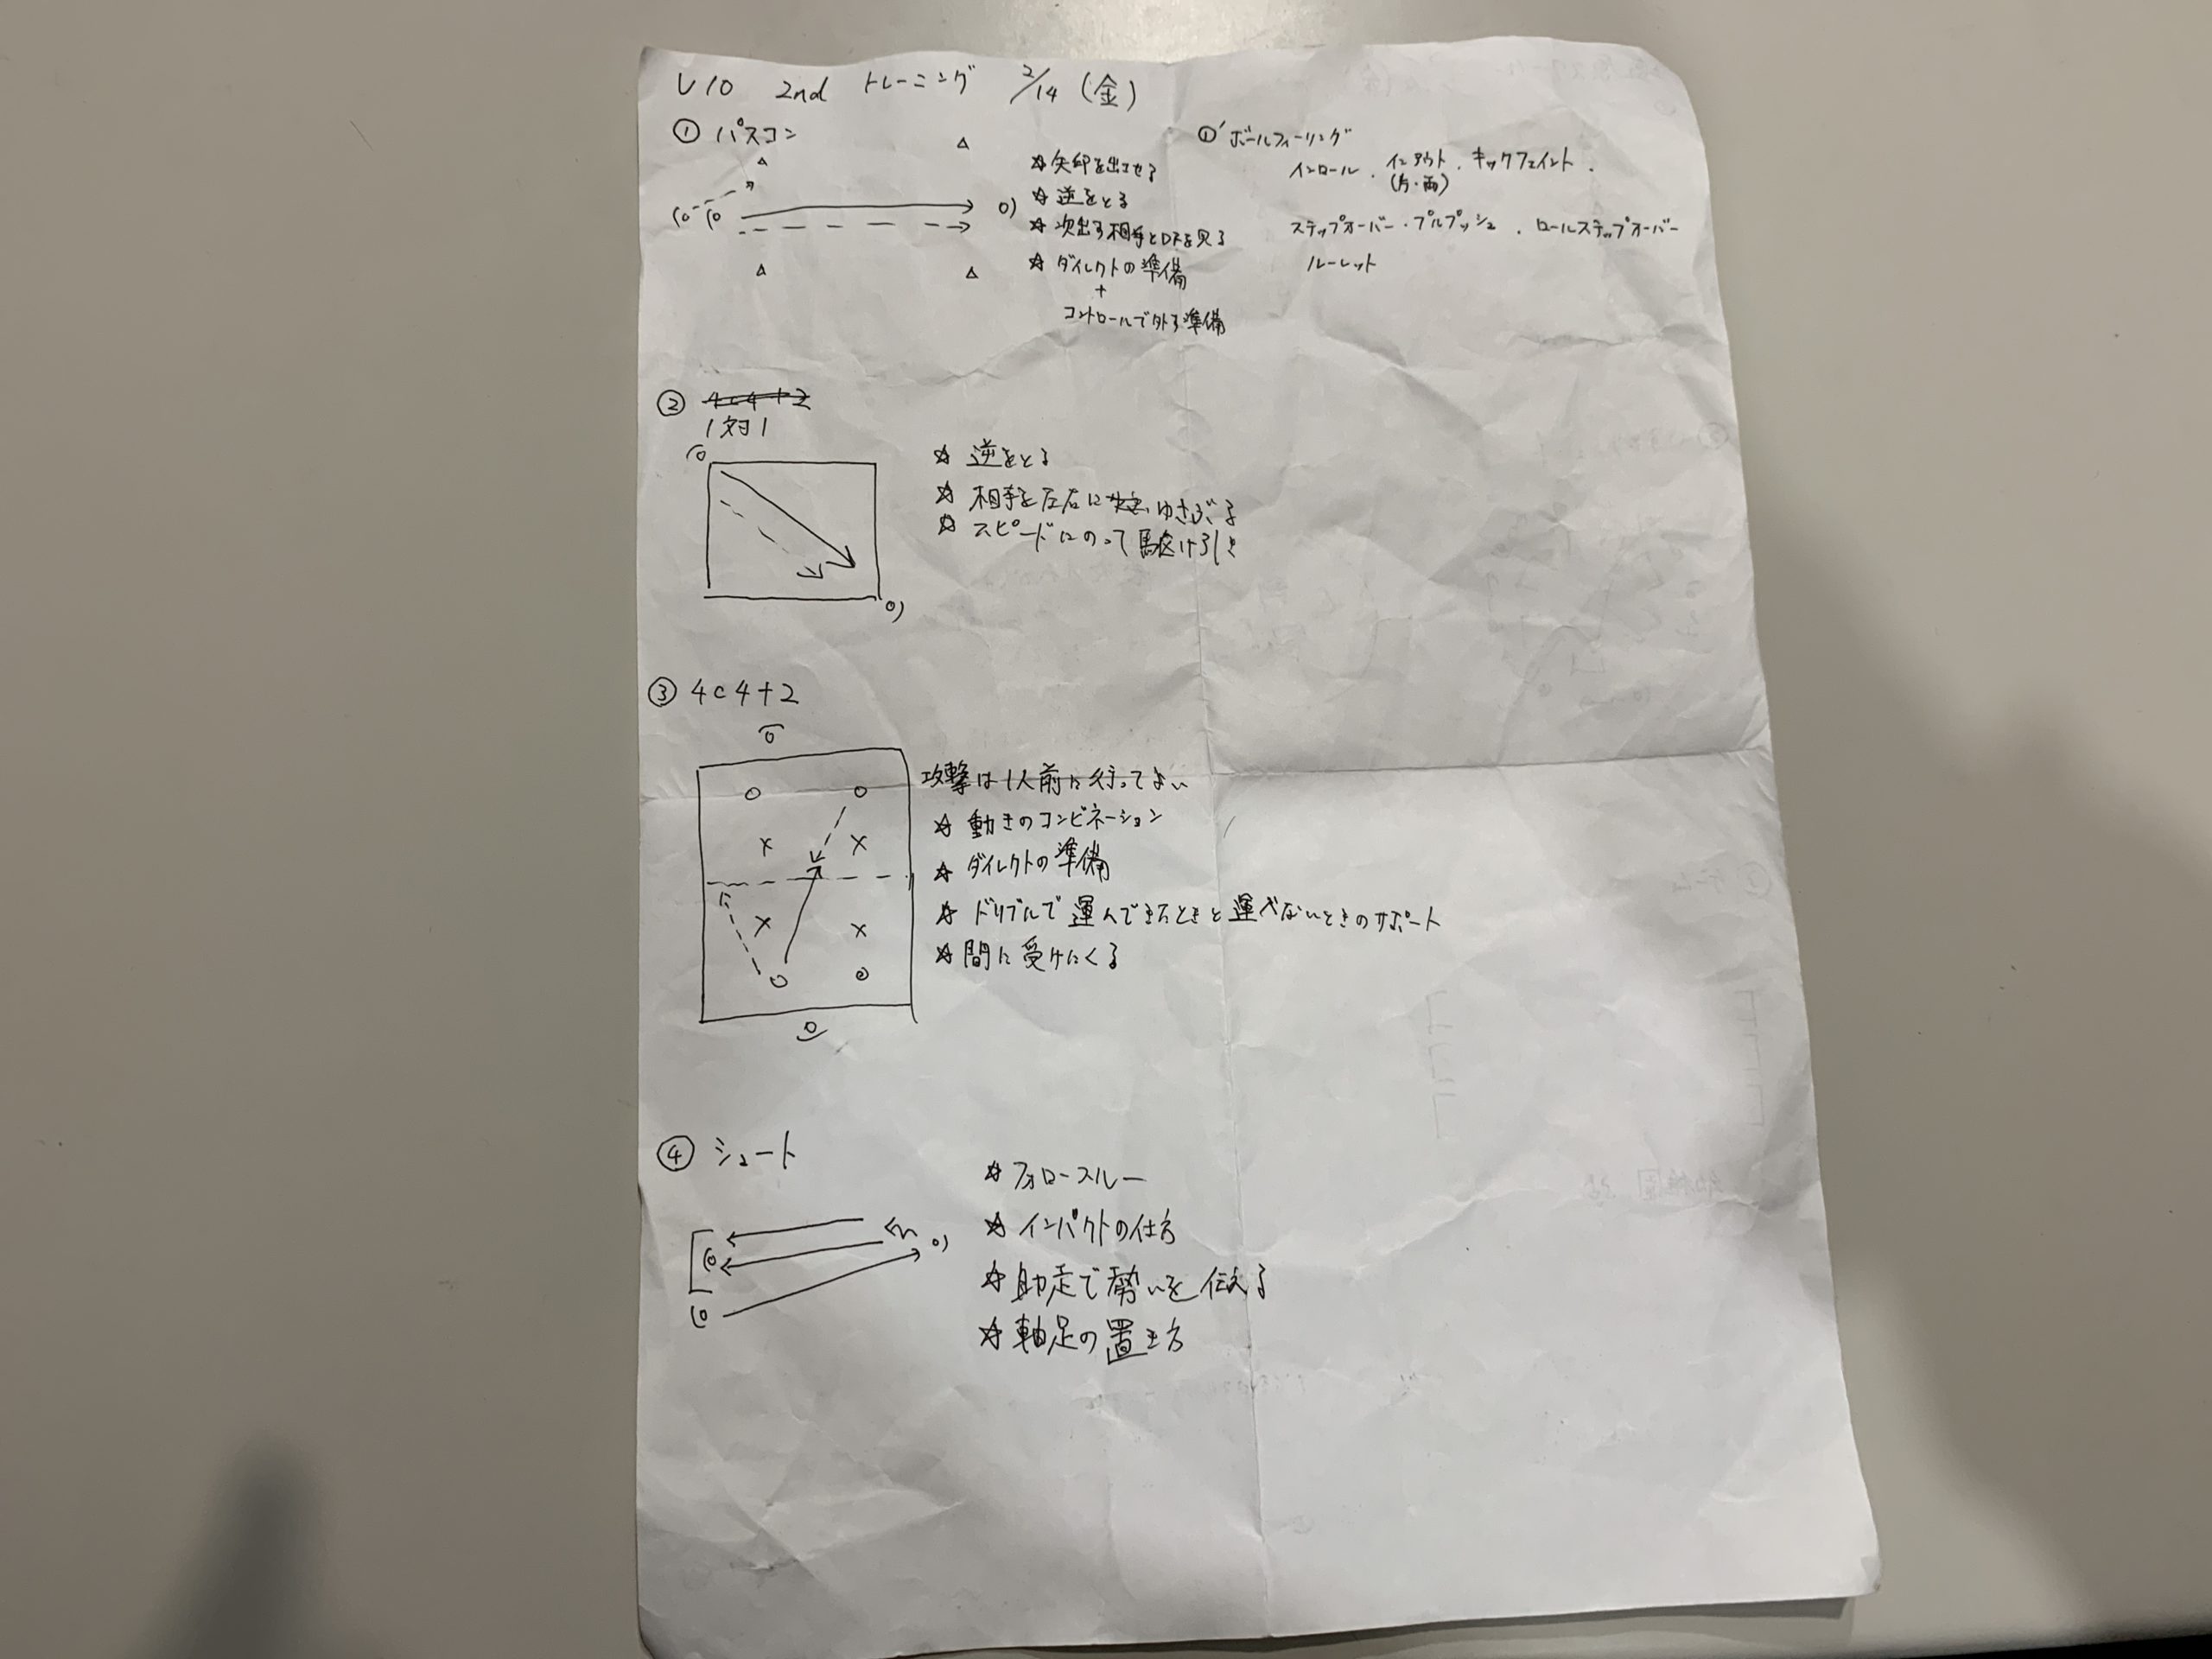 U10 2nd トレーニング 2/14 (金)
① パスコン
☆ 矢印を出させる
☆ 逆をとる
☆ 次出す相手とDFを見る
☆ ダイレクトの準備
+
コントロールで外す準備
①' ボールフィーリング
インロール・インアウト・キックフェイント・
(片・両)
ステップオーバー・プルプッシュ・ロールステップオーバー
ルーレット
② 4c4+2
1対1
☆ 逆をとる
☆ 相手を左右に ゆさぶる
☆ スピードにのって駆け引き
③ 4c4+2
攻撃は1人前に行ってよい
☆ 動きのコンビネーション
☆ ダイレクトの準備
☆ ドリブルで運んできたときと運べないときのサポート
☆ 間に受けにくる
④ シュート
☆ フォロースルー
☆ インパクトの仕方
☆ 助走で勢いを伝える
☆ 軸足の置き方